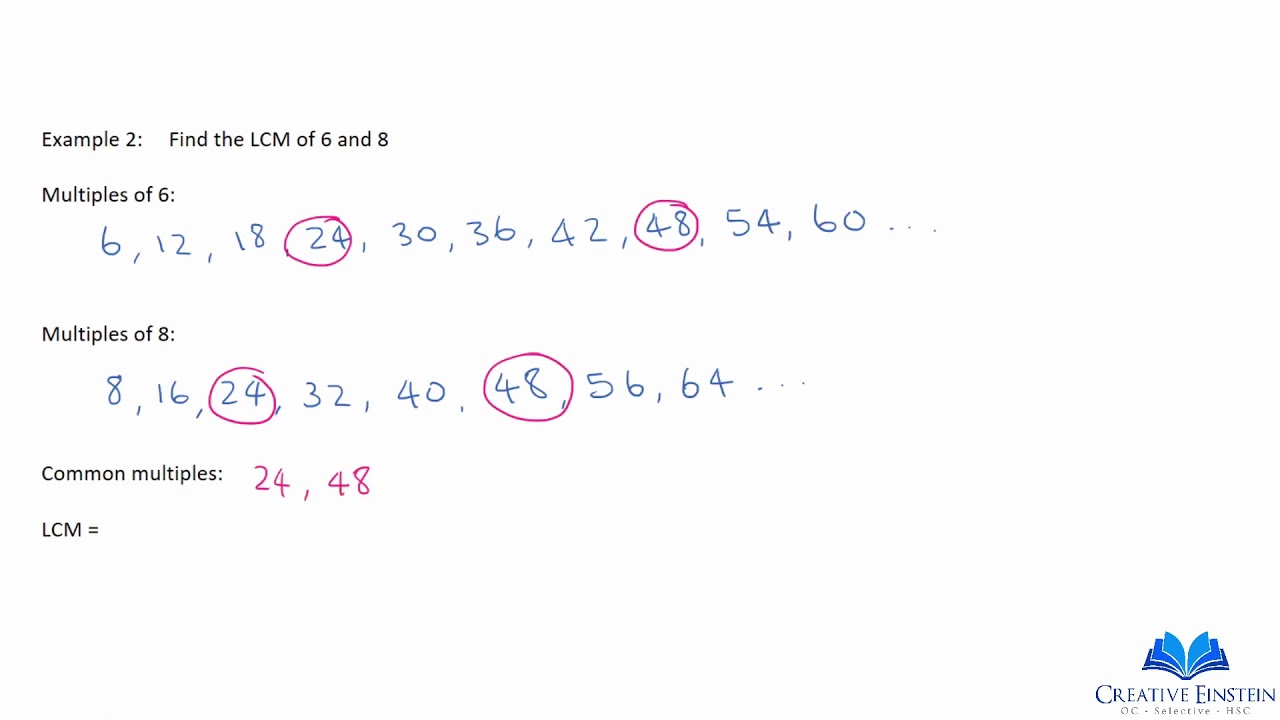 Example 2: Find the LCM of 6 and 8
Multiples of 6:
6, 12, 18 24, 30, 36, 42, 48, 54, 60 ...
Multiples of 8:
8, 16, 24, 32, 40, 48, 56, 64 ...
Common multiples: 24, 48
LCM =
CREATIVE EINSTEIN
OC - Selective - HSC